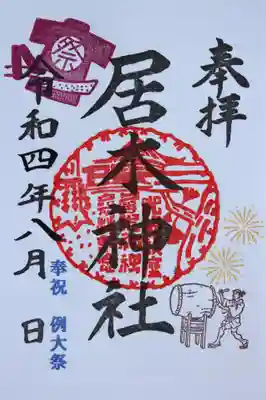 奉拝
居木神社
令和四年八月 日
奉祝 例大祭
祭